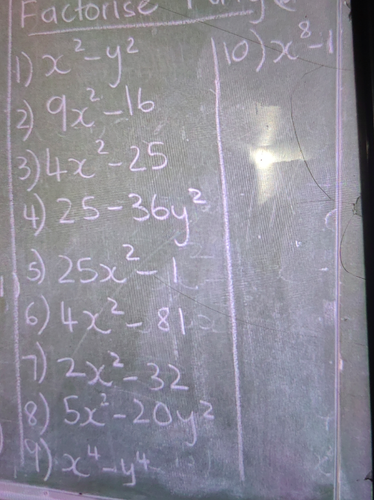 Factorise
1) x² - y²
2) 9x² - 16
3) 4x² - 25
4) 25 - 36y²
5) 25x² - 1
6) 4x² - 81
7) 2x² - 32
8) 5x² - 20y²
9) x⁴ - y⁴
10) x⁸ - 1